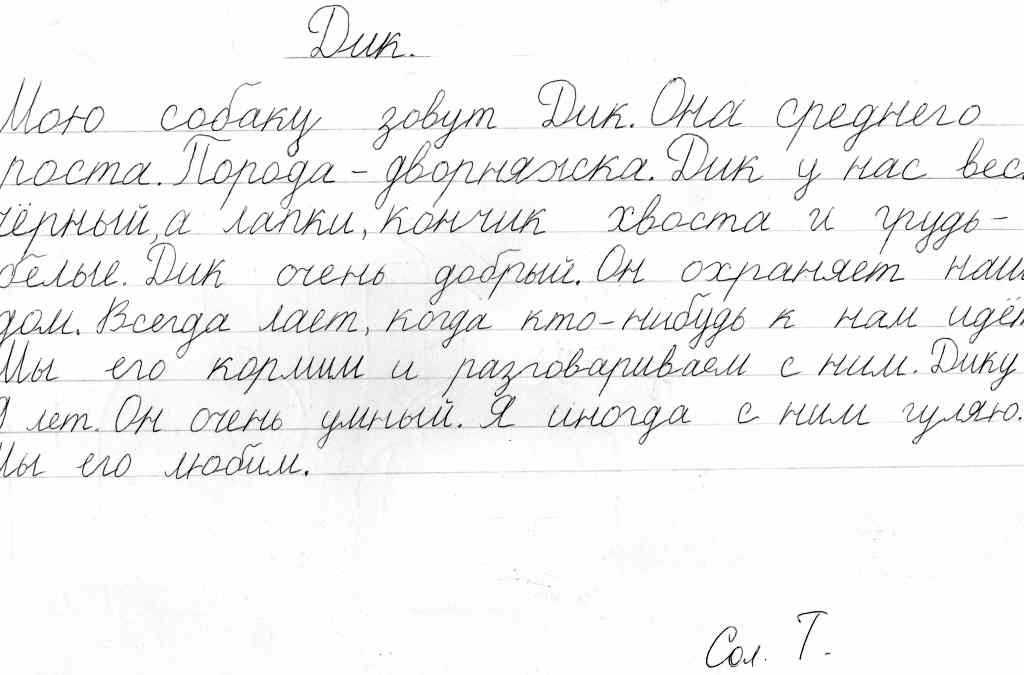 Дик.
Мою собаку зовут Дик. Она среднего
роста. Порода - дворняжка. Дик у нас вес
чёрный, а лапки, кончик хвоста и грудь -
белые. Дик очень добрый. Он охраняет наш
дом. Всегда лает, когда кто-нибудь к нам идёт
Мы его кормим и разговариваем с ним. Дику
9 лет. Он очень умный. Я иногда с ним гуляю.
Мы его любим.
Сол. Т.